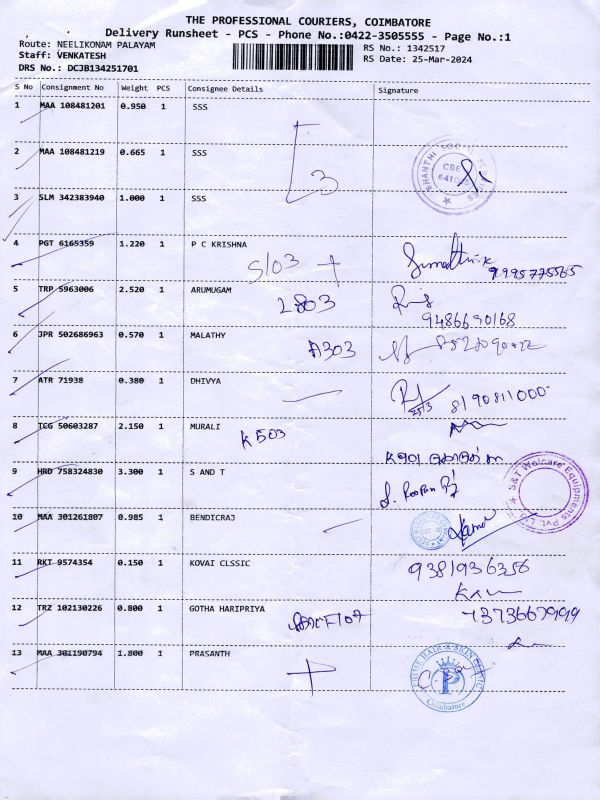 THE PROFESSIONAL COURIERS, COIMBATORE
Delivery Runsheet - PCS - Phone No.:0422-3505555 - Page No.:1
Route: NEELIKONAM PALAYAM
RS No.: 1342517
Staff: VENKATESH
RS Date: 25-Mar-2024
DRS No.: DCJB134251701
S No Consignment No Weight PCS Consignee Details Signature
1 MAA 108481201 0.950 1 SSS
2 MAA 108481219 0.665 1 SSS
3
3 SLM 342383940 1.000 1 SSS
4 PGT 6165359 1.220 1 P C KRISHNA
S103
9995775565
5 TRP 5963006 2.520 1 ARUMUGAM
L803
9486690168
6 JPR 502686963 0.570 1 MALATHY
A303
7 ATR 71938 0.380 1 DHIVYA
8190811000
8 TCG 50603287 2.150 1 MURALI
K503
K901
9 HRD 758324830 3.300 1 S AND T
S&T Welcare Equipments Pvt. Ltd
10 MAA 301261807 0.985 1 BENDICRAJ
11 RKT 9574354 0.150 1 KOVAI CLSSIC
9381936356
12 TRZ 102130226 0.800 1 GOTHA HARIPRIYA
F107
13 MAA 301190794 1.800 1 PRASANTH
PRIME HAIR & SKIN CLINIC
P
Coimbatore